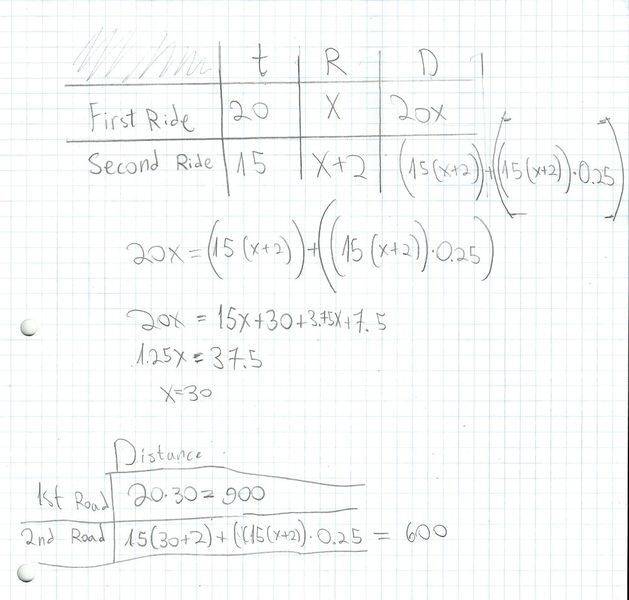 t R D
First Ride 20 X 20x
Second Ride 15 X+2 (15(x+2))+((15(x+2))·0.25)
20x=(15(x+2))+((15(x+2))·0.25)
20x = 15x+30+3.75x+7.5
1.25x=37.5
x=30
Distance
1st Road 20·30=900
2nd Road 15(30+2)+((15(x+2))·0.25 = 600